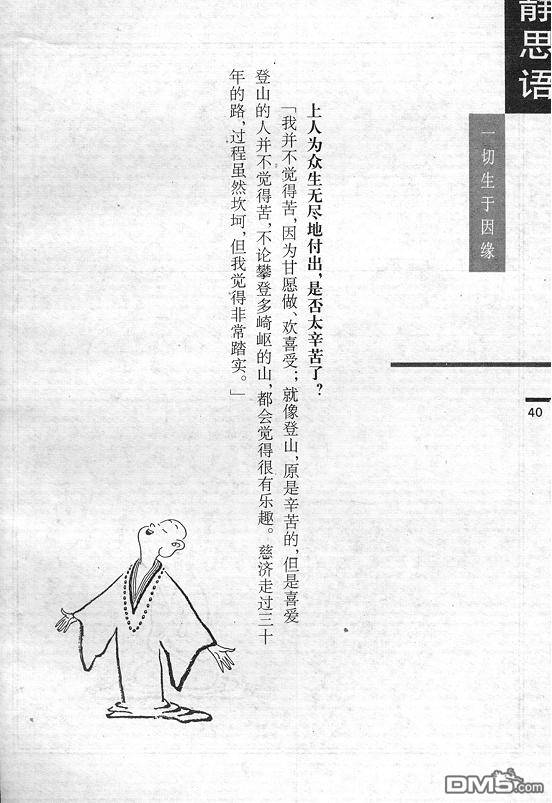 静思语
一切生于因缘
40
上人为众生无尽地付出，是否太辛苦了？
「我并不觉得苦，因为甘愿做、欢喜受；就像登山，原是辛苦的，但是喜爱
登山的人并不觉得苦，不论攀登多崎岖的山，都会觉得很有乐趣。慈济走过三十
年的路，过程虽然坎坷，但我觉得非常踏实。」
DM5.com